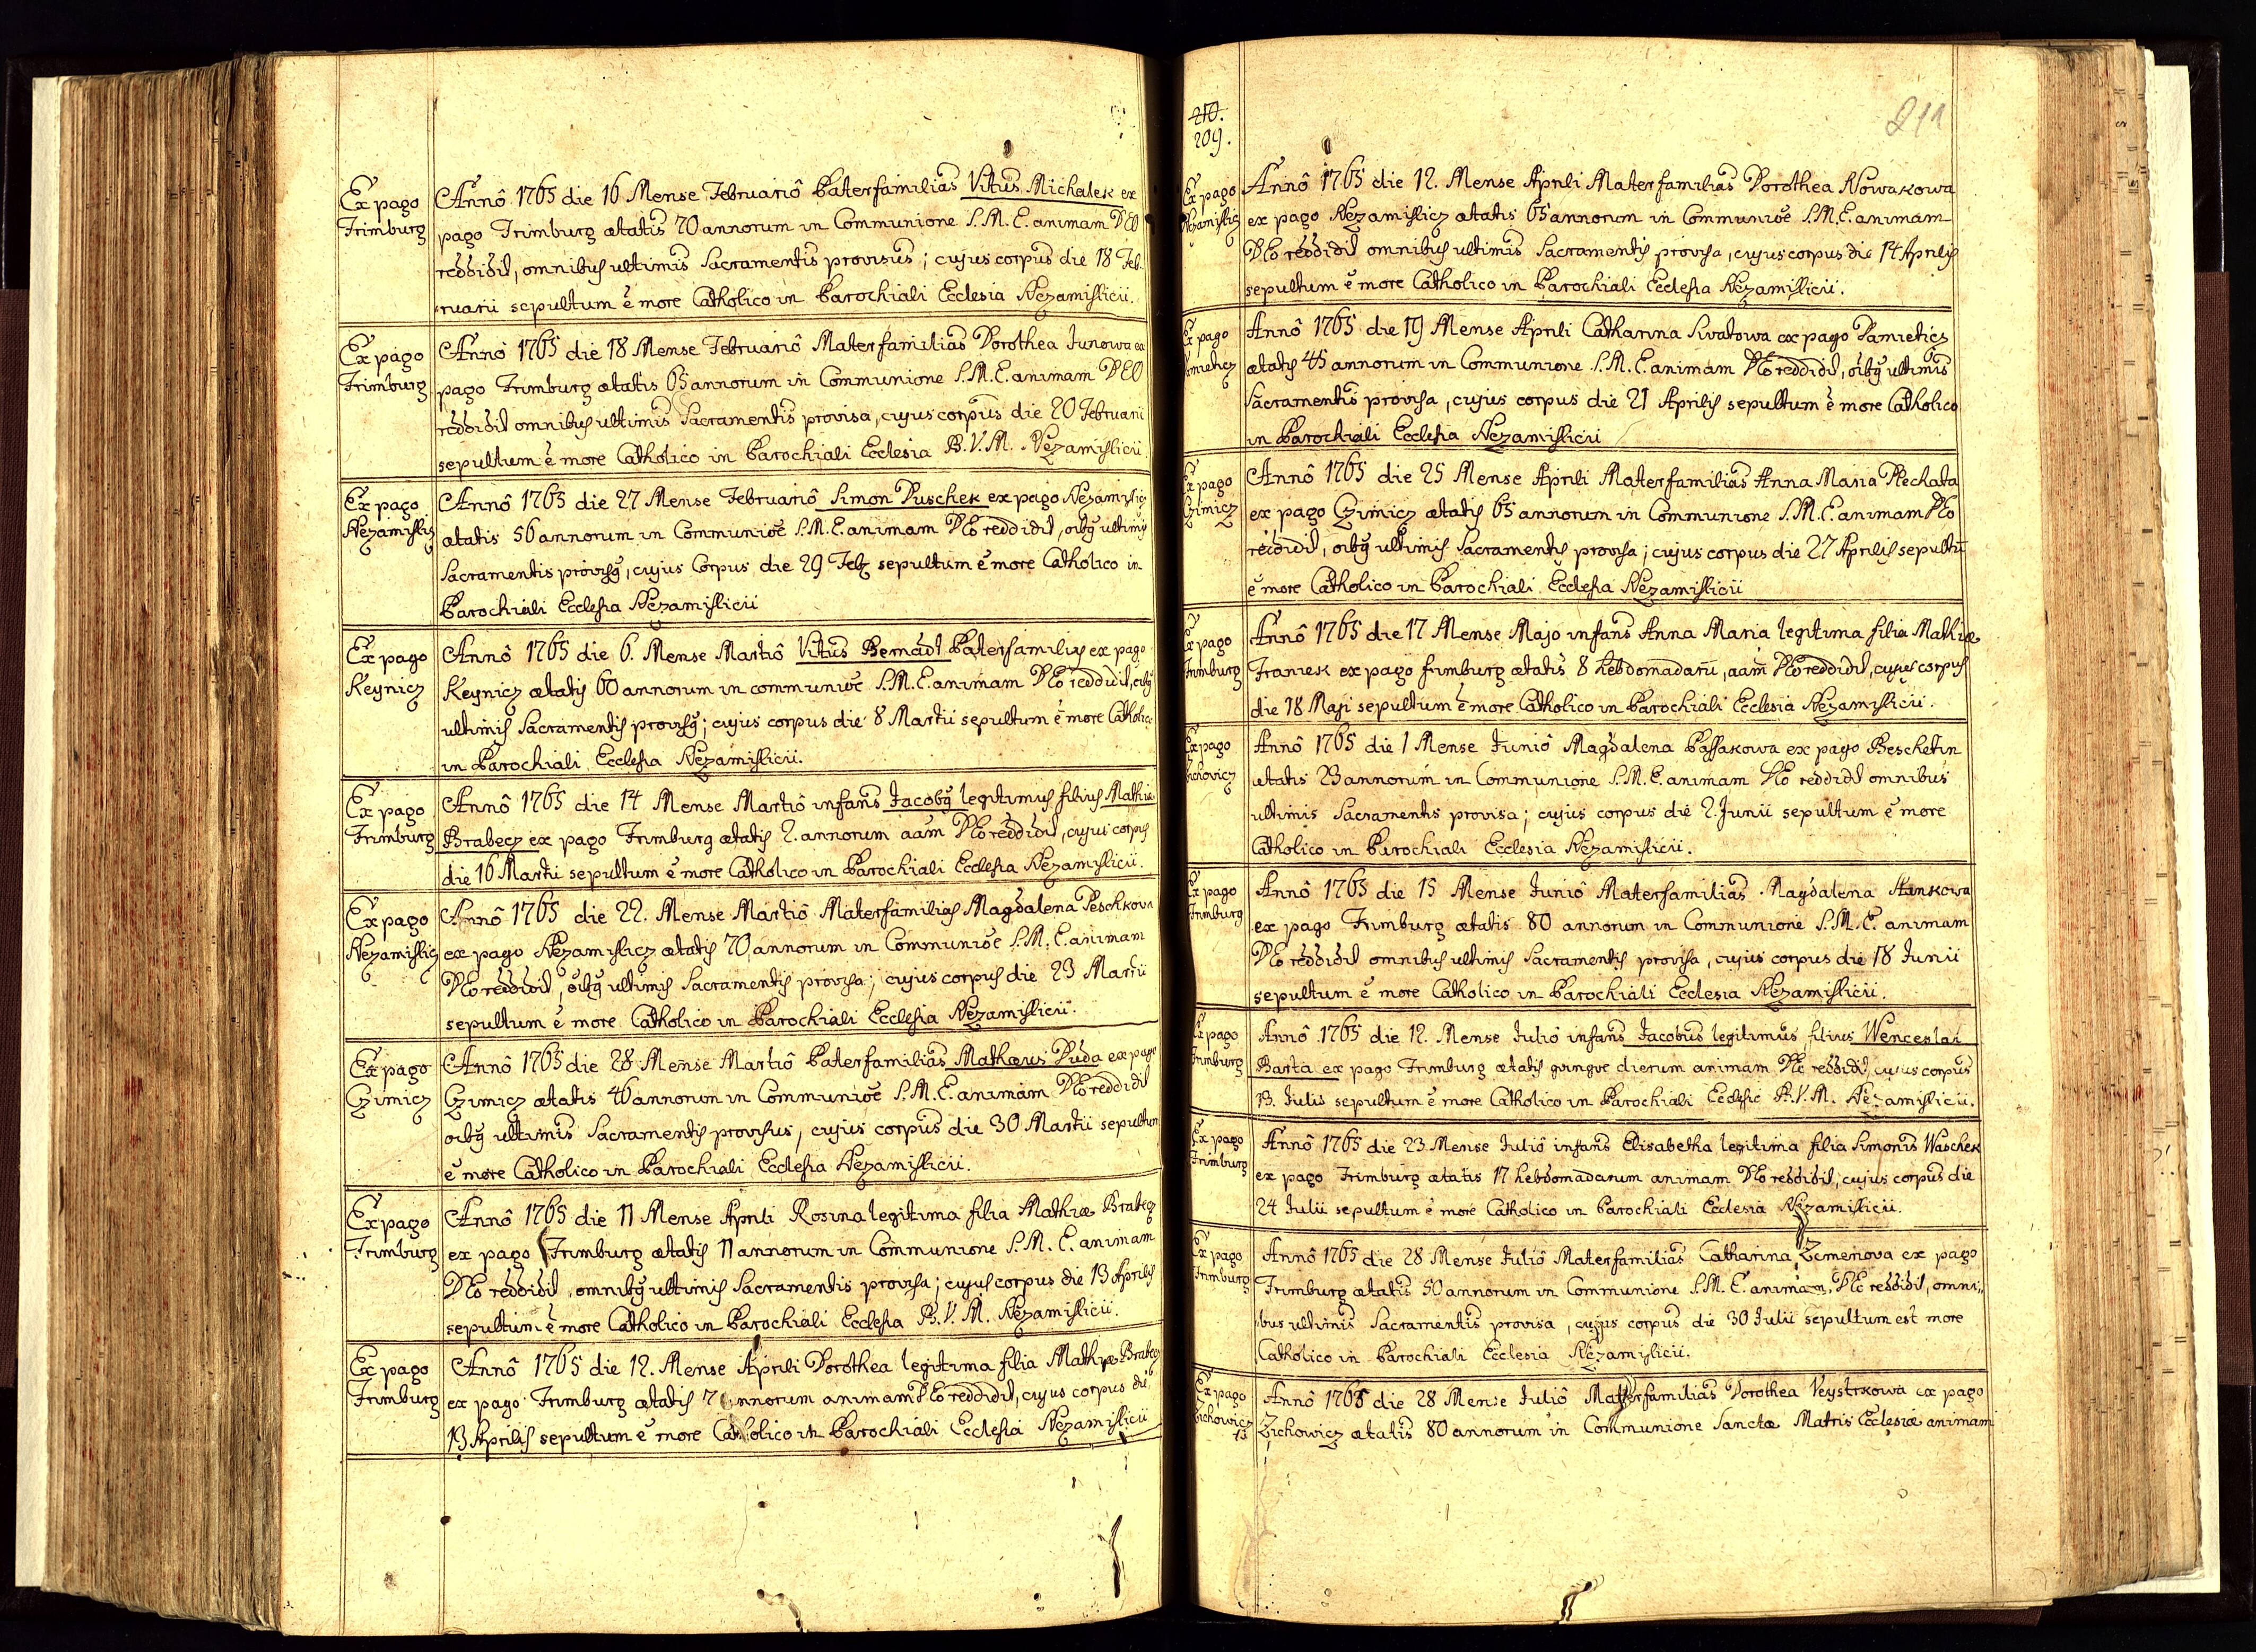 Ex pago
Trimburg
Annô 1765 die 16 Mense Februariô Paterfamilias Vitus Michalek ex
pago Trimburg ætatis 70 annorum in Communione S.M.E. animam DEO
reddidit, omnibus ultimis Sacramentis provisus; cujus corpus die 18 Feb-
ruarii sepultum ê more Catholico in Parochiali Ecclesia Nezamislicii.
Ex pago
Trimburg
Annô 1765 die 18 Mense Februariô Materfamilias Dorothea Junowa ex
pago Trimburg ætatis 65 annorum in Communione S.M.E. animam DEO
reddidit omnibus ultimis Sacramentis provisa, cujus corpus die 20 Februarii
sepultum ê more Catholico in Parochiali Ecclesia B.V.M. Nezamislicii.
Ex pago
Nezamislicz
Annô 1765 die 27 Mense Februariô Simon Duschek ex pago Nezamislicz
ætatis 56 annorum in Communiõe S.M.E. animam DEo reddidit, oibq ultimis
Sacramentis provisq, cujus Corpus die 29 Feb sepultum ê more Catholico in
Parochiali Ecclesia Nezamislicii
Ex pago
Keynicz
Annô 1765 die 6. Mense Martiô Vitus Bernadt Paterfamilias ex pago
Keynicz ætatis 60 annorum in communiõe S.M.E. animam DEo reddidit, oibq
ultimis Sacramentis provisq; cujus corpus die 8 Martii sepultum ê more Catholico
in Parochiali Ecclesia Nezamislicii.
Ex pago
Trimburg
Annô 1765 die 14 Mense Martiô infans Jacobq legitimus filius Mathiæ
Brabecz ex pago Trimburg ætatis 2. annorum aam DEo reddidit, cujus corpus
die 16 Martii sepultum ê more Catholico in Parochiali Ecclesia Nezamislicii.
Ex pago
Nezamislicz
Annô 1765 die 22. Mense Martiô Materfamilias Magdalena Peschkova
ex pago Nezamislicz ætatis 70 annorum in Communiõe S.M.E. animam
DEo reddidit, oibq ultimis Sacramentis provisa; cujus corpus die 23 Martii
sepultum ê more Catholico in Parochiali Ecclesia Nezamislicii.
Ex pago
Czimicz
Annô 1765 die 28 Mense Martiô Paterfamilias Mathæus Duda ex pago
Czimicz ætatis 46 annorum in Communiõe S.M.E. animam DEo reddidit
oibq ultimis Sacramentis provisus, cujus corpus die 30 Martii sepultum
ê more Catholico in Parochiali Ecclesia Nezamislicii.
Ex pago
Trimburg
Annô 1765 die 11 Mense Aprili Rosina legitima filia Mathiæ Brabecz
ex pago Trimburg ætatis 11 annorum in Communione S.M.E. animam
DEo reddidit, omnibq ultimis Sacramentis provisa; cujus corpus die 13 Aprilis
sepultum ê more Catholico in Parochiali Ecclesia B.V.M. Nezamislicii.
Ex pago
Trimburg
Annô 1765 die 12. Mense Aprili Dorothea legitima filia Mathiæ Brabecz
ex pago Trimburg ætatis 7 annorum animam DEo reddidit, cujus corpus die
13 Aprilis sepultum ê more Catholico in Parochiali Ecclesia Nezamislicii
210.
209.
211
Ex pago
Nezamislicz
Annô 1765 die 12. Mense Aprili Materfamilias Dorothea Nowakowa
ex pago Nezamislicz ætatis 65 annorum in Communiõe S.M.E. animam
DEo reddidit omnibus ultimis Sacramentis provisa, cujus corpus die 14 Aprilis
sepultum ê more Catholico in Parochiali Ecclesia Nezamislicii.
Ex pago
Damieticz
Annô 1765 die 19 Mense Aprili Catharina Swatowa ex pago Damieticz
ætatis 45 annorum in Communione S.M.E. animam DEo reddidit, oibq ultimis
Sacramentis provisa, cujus corpus die 21 Aprilis sepultum ê more Catholico
in Parochiali Ecclesia Nezamislicii
Ex pago
Czimicz
Annô 1765 die 25 Mense Aprili Materfamilias Anna Maria Plechata
ex pago Czimicz ætatis 65 annorum in Communione S.M.E. animam DEo
reddidit, oibq ultimis Sacramentis provisa; cujus corpus die 27 Aprilis sepultū
ê more Catholico in Parochiali Ecclesia Nezamislicii
Ex pago
Trimburg
Annô 1765 die 17 Mense Majo infans Anna Maria legitima filia Mathiæ
Franek ex pago Trimburg ætatis 8 hebdomadarū, aam DEo reddidit, cujus corpus
die 18 Maji sepultum ê more Catholico in Parochiali Ecclesia Nezamislicii.
Ex pago
Zichovicz
Annô 1765 die 1 Mense Juniô Magdalena Passakowa ex pago Beschetin
ætatis 23 annorum in Communione S.M.E. animam DEo reddidit omnibus
ultimis Sacramentis provisa; cujus corpus die 2. Junii sepultum ê more
Catholico in Parochiali Ecclesia Nezamislicii.
Ex pago
Trimburg
Annô 1765 die 15 Mense Juniô Materfamilias Magdalena Hankowa
ex pago Trimburg ætatis 80 annorum in Communione S.M.E. animam
DEo reddidit omnibus ultimis Sacramentis provisa, cujus corpus die 18 Junii
sepultum ê more Catholico in Parochiali Ecclesia Nezamislicii.
Ex pago
Trimburg
Annô 1765 die 12. Mense Juliô infans Jacobus legitimus filius Wenceslai
Barta ex pago Trimburg ætatis quinque dierum animam DEo reddidit, cujus corpus
13. Julii sepultum ê more Catholico in Parochiali Ecclesie B.V.M. Nezamislicii.
Ex pago
Trimburg
Annô 1765 die 23 Mense Juliô infans Elisabetha legitima filia Simonis Waschek
ex pago Trimburg ætatis 17 hebdomadarum animam DEo reddidit, cujus corpus die
24 Julii sepultum ê more Catholico in Parochiali Ecclesia Nezamislicii.
Ex pago
Trimburg
Annô 1765 die 28 Mense Juliô Materfamilias Catharina Zemenova ex pago
Trimburg ætatis 50 annorum in Communione S.M.E. animam DEo reddidit, omni„
bus ultimis Sacramentis provisa, cujus corpus die 30 Julii sepultum est more
Catholico in Parochiali Ecclesia Nezamislicii.
Ex pago
Zichowicz
Annô 1765 die 28 Mense Juliô Materfamilias Dorothea Veystrkowa ex pago
Zichowicz ætatis 80 annorum in Communione Sanctæ Matris Ecclesiæ animam